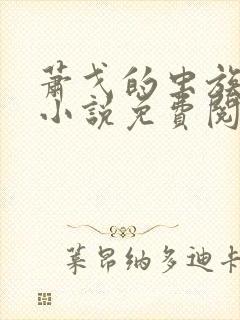 萧戈的虫族
小说免费阅
莱昂纳多迪卡